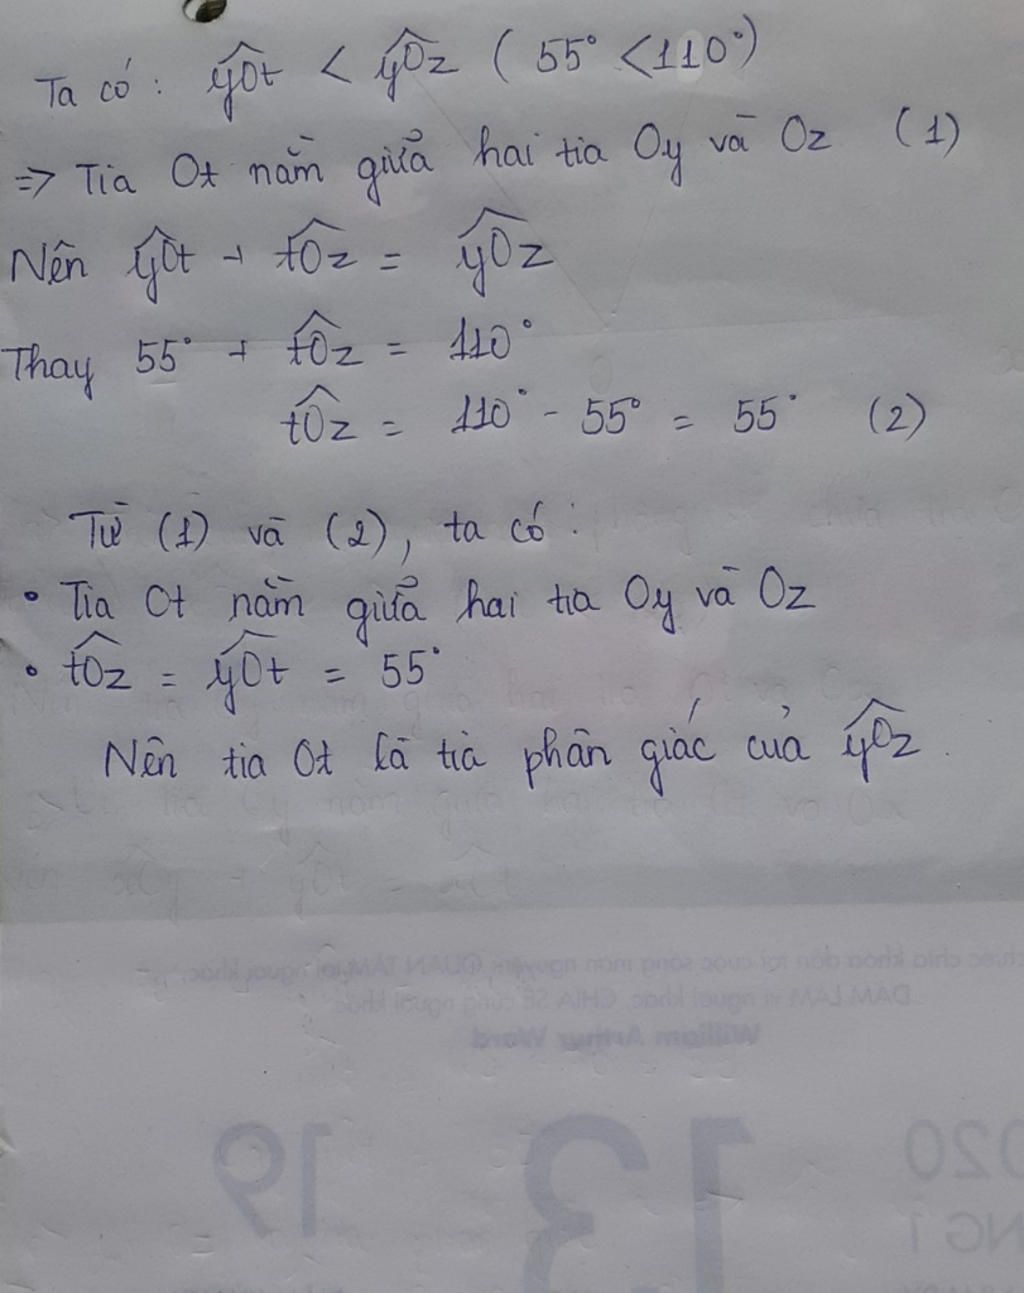 Ta có: yOt < yOz (55° < 110°)
=> Tia Ot nằm giữa hai tia Oy và Oz (1)
Nên yOt + tOz = yOz
Thay 55° + tOz = 110°
tOz = 110° - 55° = 55° (2)
Từ (1) và (2), ta có:
• Tia Ot nằm giữa hai tia Oy và Oz
• tOz = yOt = 55°
Nên tia Ot là tia phân giác của yOz.
William Arthur Ward
19
13